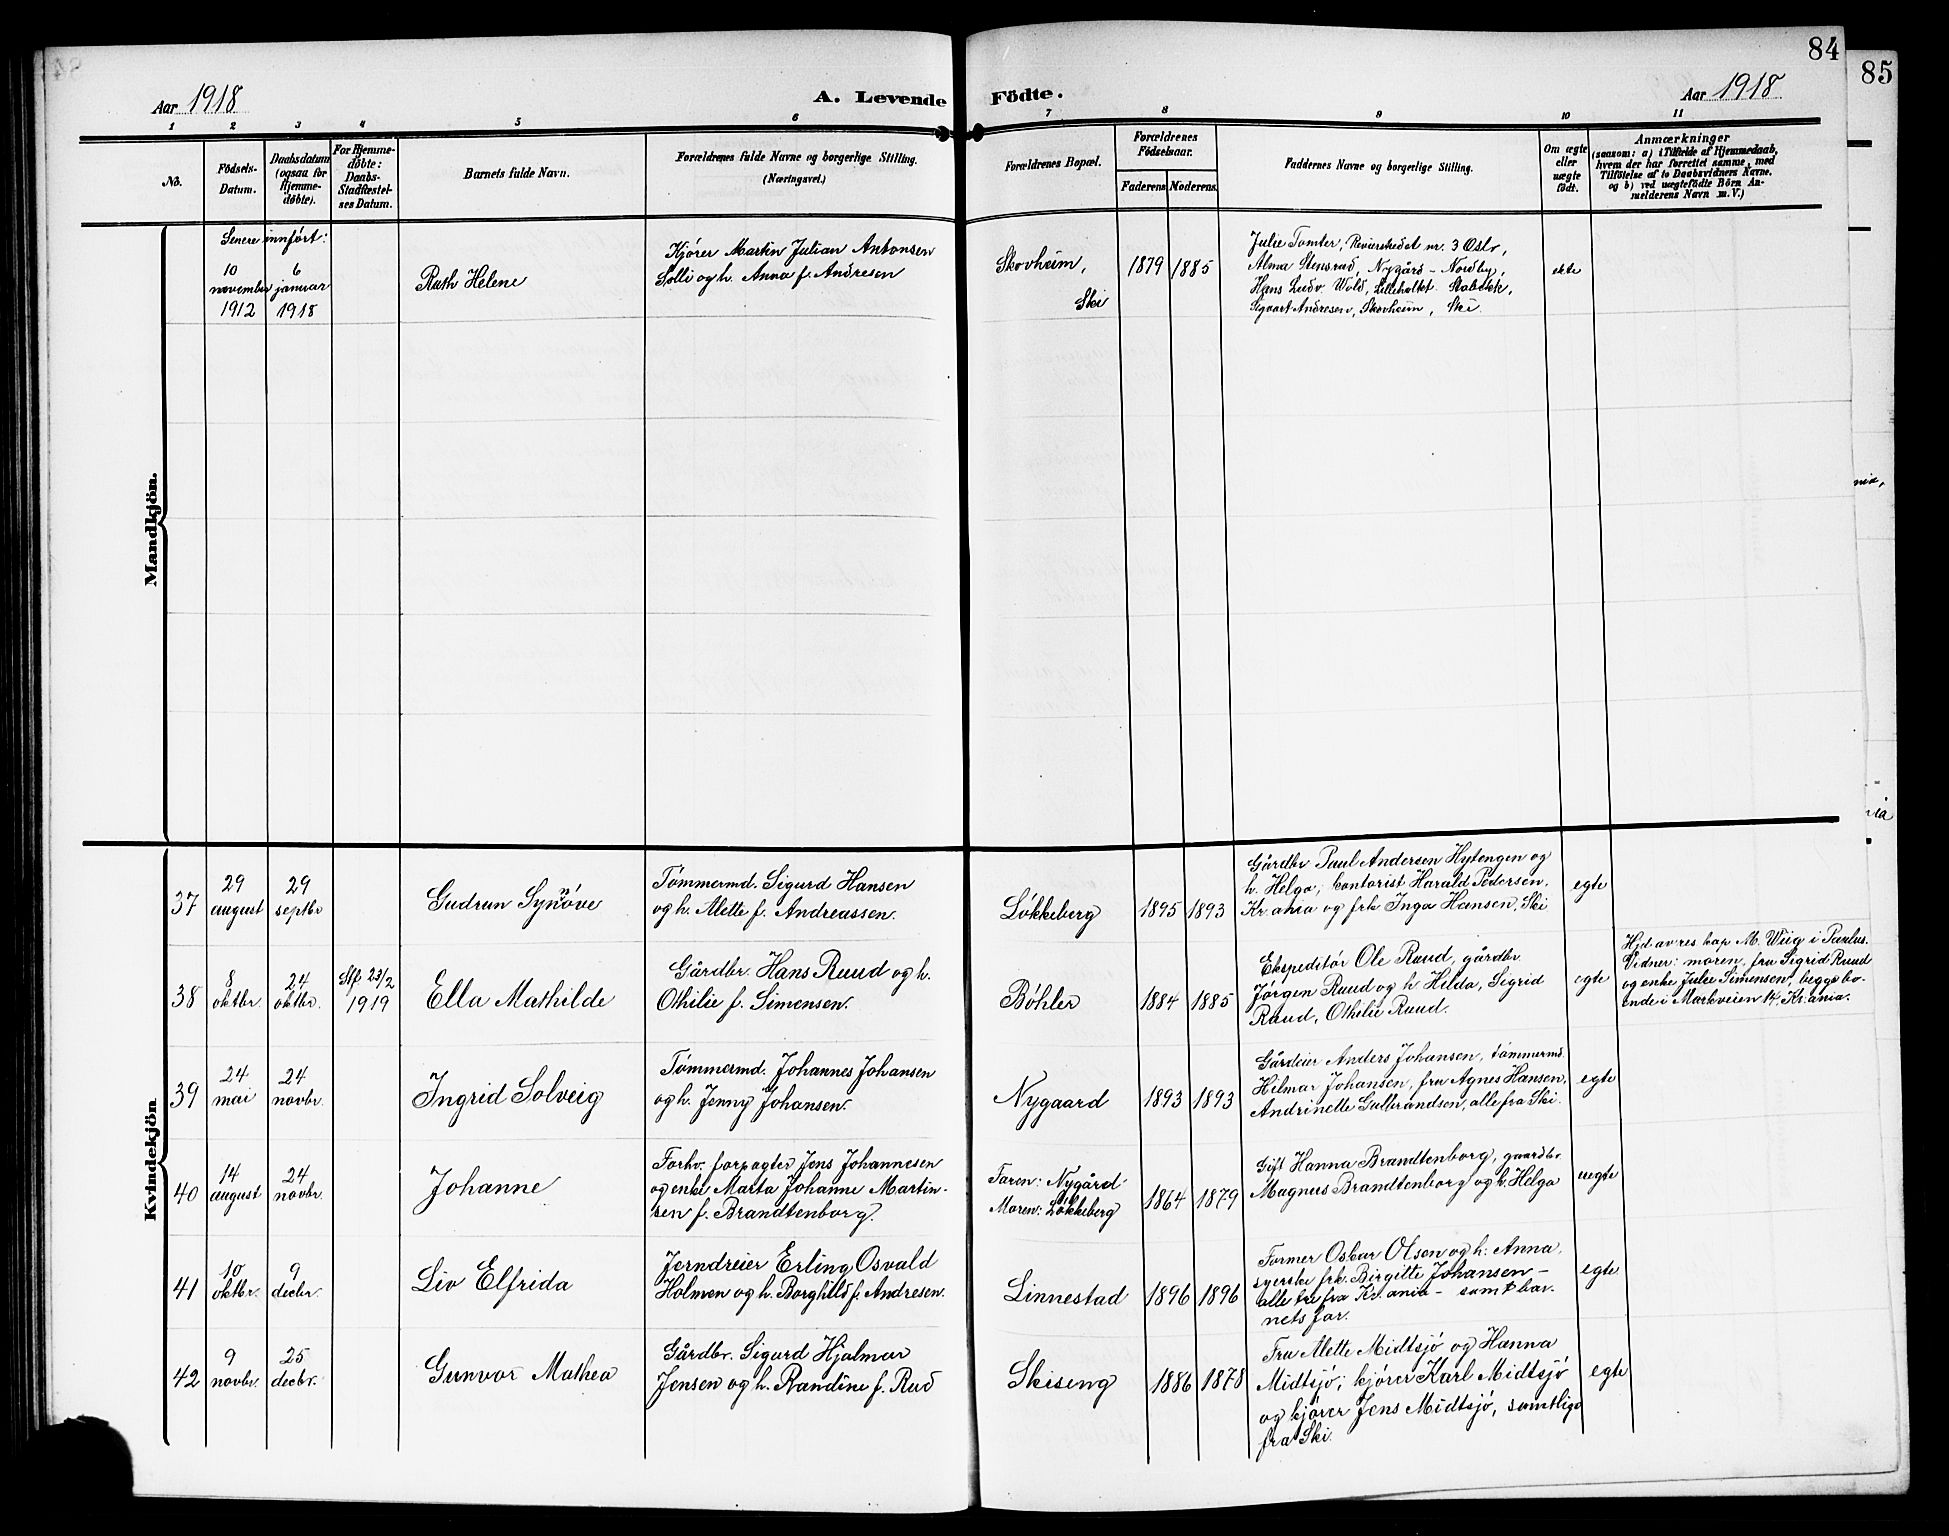 84
85
Aar 1918
A. Levende
Födte.
Aar 1918
1 2 3 4 5 6 7 8 9 10 11
No.
Födsels-
Datum.
Daabsdatum
(ogsaa for
Hjemme-
döbte).
For Hjemme-
döbte:
Daabs-
Stadfæstel-
ses Datum.
Barnets fulde Navn.
Forældrenes fulde Navne og borgerlige Stilling.
(Næringsvei.)
Forældrenes Bopæl.
Forældrenes
Födselsaar.
Faderens Moderens.
Faddernes Navne og borgerlige Stilling.
Om ægte
eller
uægte
födt.
Anmærkninger
(saasom: a) i Tilfælde af Hjemmedaab,
hvem der har forrettet samme, med
Tilföielse af to Daabsvidners Navne,
og b) ved uægtefödte Börn An-
melderens Navn m. V.)
Mandkjön.
Senere innført:
10
november
1912
6
januar
1918
Ruth Helene
Kjører Martin Julian Antonsen
Solli og h. Anna f. Andresen
Skovheim,
Ski
1879 1885
Julie Tomter, Revierstedet nr. 3 Oslo,
Alma Stensrud, Nygård - Nordby,
Hans Ludv. Wold, Lilleholtet Stabekk,
Sigvart Andresen, Skovheim, Ski.
ekte
Kvindekjön
37
29
august
29
septbr
Gudrun Synnöve
Tømmermd. Sigurd Hansen
og h. Alette f. Andreassen.
Løkkeberg
1895 1893
Gårdbr Paul Andersen Hytengen og
h. Helga; kontorist Harald Pedersen,
Kr.ania og frk Inga Hansen, Ski
egte
38
8
oktbr.
24
oktbr.
Stf 23/2
1919
Ella Mathilde
Gårdbr. Hans Ruud og h.
Othilie f. Simensen.
Bøhler
1884 1885
Ekspeditør Ole Ruud, gårdbr.
Jørgen Ruud og h Hilda, Sigrid
Ruud, Othilie Ruud.
egte
Hjd av res kap M. Wiig i Paulus.
Vidner: moren, fru Sigrid Ruud
og enke Julie Simensen, begge bo-
ende i Markveien 14, Kr.ania.
39
24
mai
24
novbr.
Ingrid Solveig
Tømmermd. Johannes Johansen
og h. Jenny Johansen.
Nygaard
1893 1893
Gårdeier Anders Johansen, tømmermd.
Hilmar Johansen, fru Agnes Hansen,
Andrinette Gulbrandsen, alle fra Ski.
egte
40
14
august
24
novbr.
Johanne
Forhv. forpagter Jens Johannesen
og enke Marta Johanne Martin-
sen f. Brandtenborg.
Faren: Nygård
Moren: Løkkeberg
1864 1879
Gift Hanna Brandtenborg, gaardbr
Magnus Brandtenborg og h. Helga
uegte
41
10
oktbr.
9
decbr.
Liv Elfrida
Jerndreier Erling Osvald
Holmen og h. Borghild f. Andresen.
Linnestad
1896 1896
Former Oskar Olsen og h. Anna,
syerske frk. Birgitte Johansen -
alle tre fra Kr.ania - samt bar-
nets far.
egte
42
9
novbr.
25
decbr.
Gunvor Mathea
Gårdbr. Sigurd Hjalmar
Jensen og h. Randine f. Rud
Skiseng
1886 1878
Fru Alette Midtsjö og Hanna
Midtsjö; kjører Karl Midtsjö
og kjører Jens Midtsjö, samtlige
fra Ski.
egte